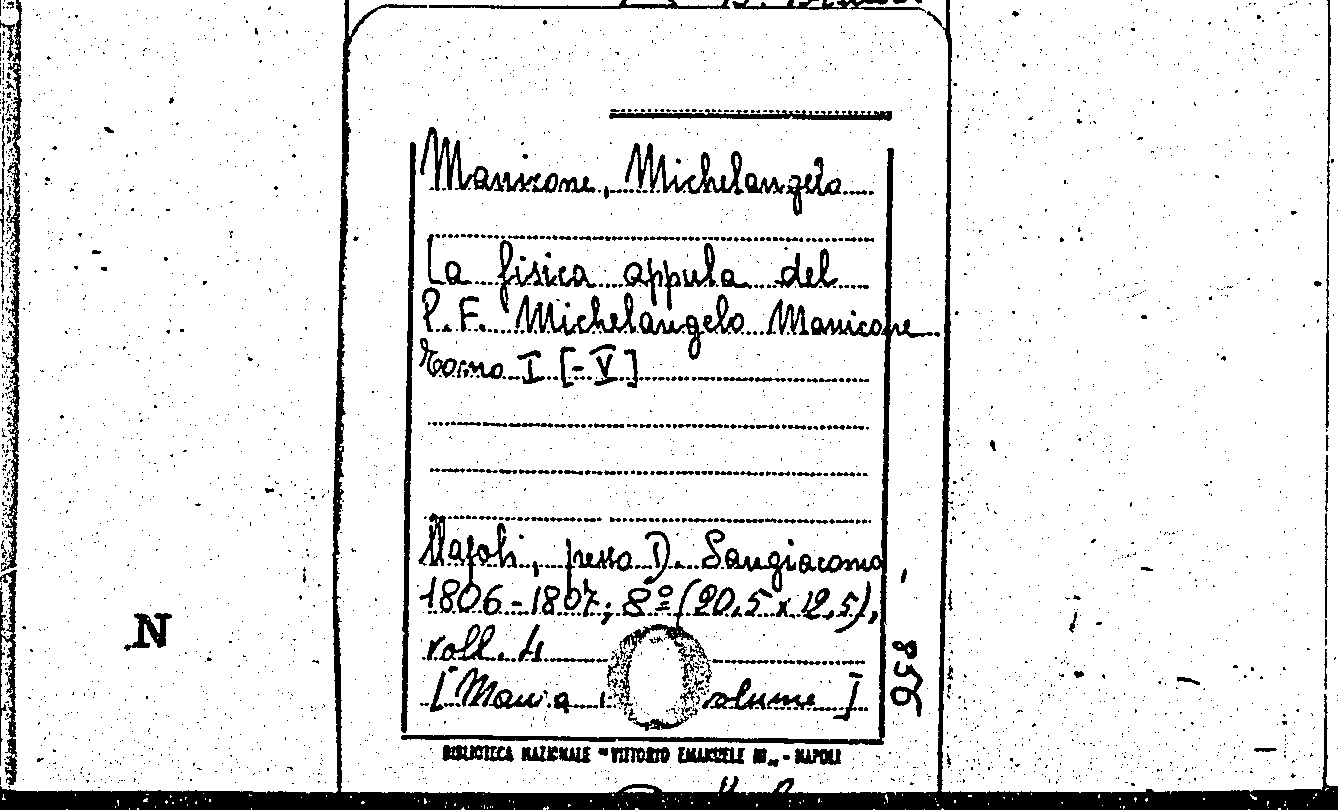 Manicone, Michelangelo
La fisica appula del
P. F. Michelangelo Manicone
Tomo I [-V]
Napoli, presso D. Sangiacomo,
1806-1807; 8º (20,5 x 12,5),
voll. 4
[Manca volume]
856
N
BIBLIOTECA NAZIONALE "VITTORIO EMANUELE III" - NAPOLI